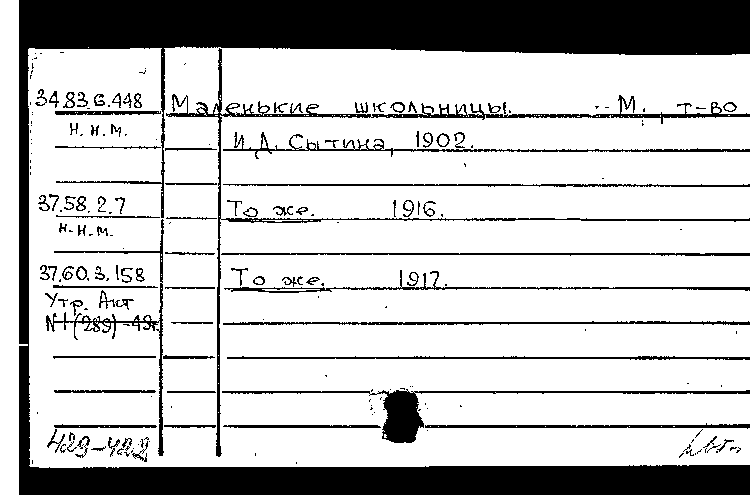 34.83.6.448 Маленькие школьницы. - М., т-во
н.н.м. И.Д. Сытина, 1902.
37.58.2.7 То же. 1916.
н.н.м.
37.60.3.158 То же. 1917.
Утр. Акт
№1 (289)-49г.
429-422